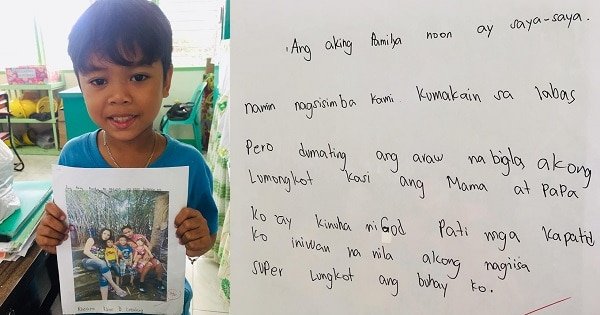 Ang aking Pamilya noon ay saya-saya.
namin nagsisimba kami. Kumakain sa labas
Pero dumating ang araw na bigla akong
Lumongkot kasi ang Mama at PaPa
ko ay kinuha ni God Pati mga kapatid
ko iniwan na nila akong nagiisa
super lungkot ang buhay ko.